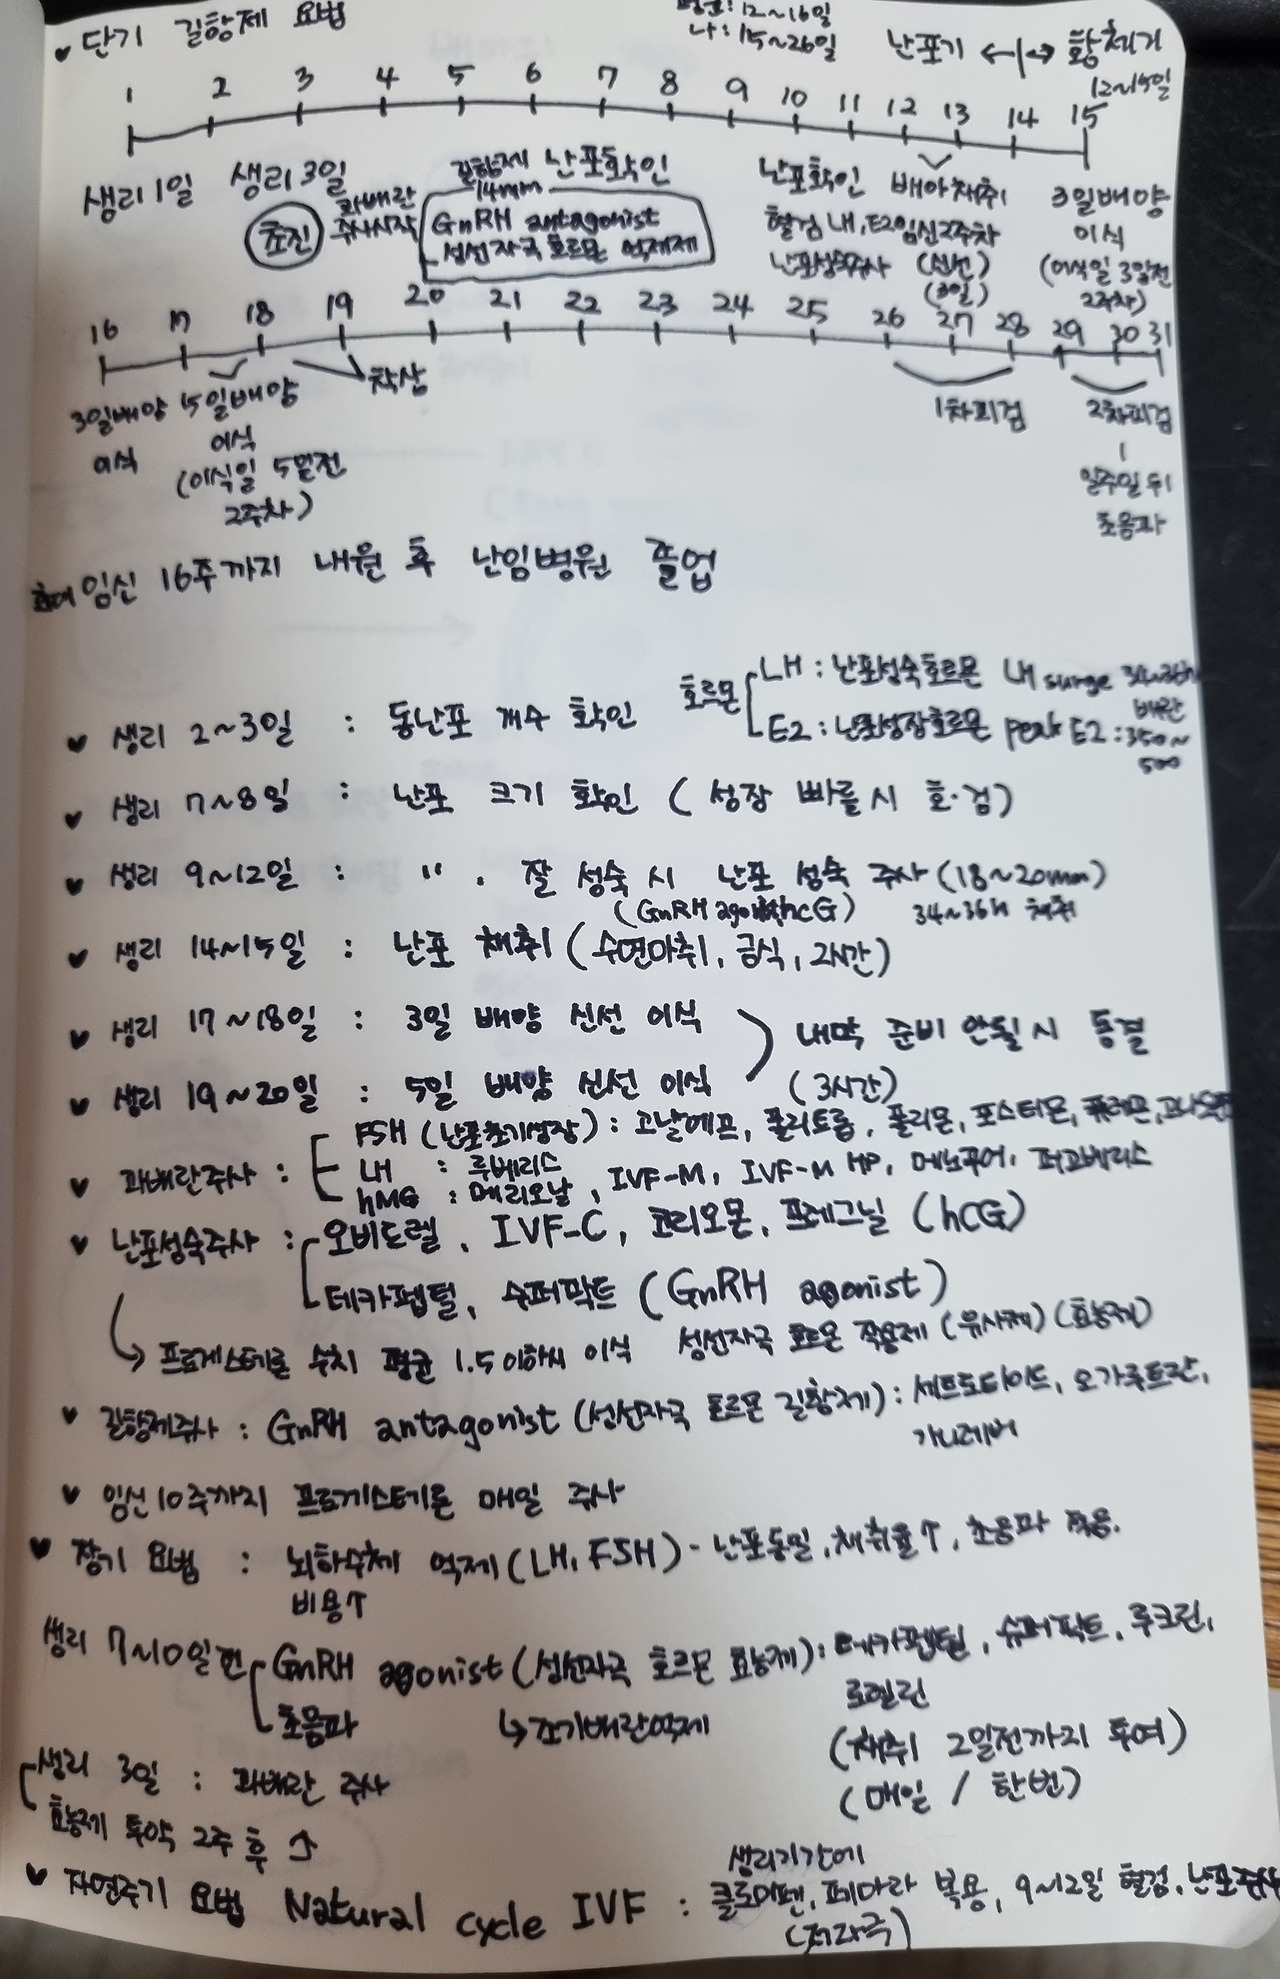 ♥ 단기 길항제 요법
12~16일
나 : 15~26일
난포기 ←|→ 황체기
12~14일
1 2 3 4 5 6 7 8 9 10 11 12 13 14 15
생리 1일 생리 3일
초진
과배란
주사시작
길항제 난포확인
14mm
GnRH antagonist
성선자극 호르몬 억제제
난포확인
혈검 LH, E2
난포성숙주사
배아채취
임신2주차
(신선)
(3일)
3일배양
이식
(이식일 3일전
2주차)
16 17 18 19 20 21 22 23 24 25 26 27 28 29 30 31
3일배양
이식
5일배양
이식
(이식일 5일전
2주차)
착상
1차피검
2차피검
일주일 뒤
초음파
임신 16주까지 내원 후 난임병원 졸업
호르몬
LH : 난포성숙호르몬 LH surge 34~36h
배란
E2 : 난포성장호르몬 peak E2 : 350~
500
♥ 생리 2~3일 : 동난포 개수 확인
♥ 생리 7~8일 : 난포 크기 확인 ( 성장 빠를 시 호·검)
♥ 생리 9~12일 : " , 잘 성숙 시 난포 성숙 주사 (18~20mm)
(GnRH agonist, hCG) 34~36h 채취
♥ 생리 14~15일 : 난포 채취 (수면마취, 금식, 2시간)
♥ 생리 17~18일 : 3일 배양 신선 이식
♥ 생리 19~20일 : 5일 배양 신선 이식
내막 준비 안될 시 동결
(3시간)
♥ 과배란주사 :
FSH (난포초기성장) : 고날에프, 폴리트롭, 폴리몬, 포스티몬, 퓨레곤,
LH : 루베리스
hMG : 메리오날, IVF-M, IVF-M HP, 메노푸어, 퍼고베리스
♥ 난포성숙주사 : 오비드렐, IVF-C, 코리오몬, 프레그닐 (hCG)
데카펩틸, 수퍼팩트 (GnRH agonist)
성선자극 호르몬 작용제 (유사제) (효능제)
↳ 프로게스테론 수치 평균 1.5이하시 이식
♥ 길항제주사 : GnRH antagonist (성선자극 호르몬 길항제) : 세트로타이드, 오가루트란,
가니레버
♥ 임신10주까지 프로게스테론 매일 주사
♥ 장기 요법 : 뇌하수체 억제 (LH, FSH) - 난포동일, 채취율↑, 초음파 적음.
비용↑
생리 7~10일전
GnRH agonist (성선자극 호르몬 효능제) : 데카펩틸, 슈퍼팩트, 루크린,
로렐린
초음파
↳ 조기배란억제
(채취 2일전까지 투여)
(매일 / 한번)
생리 3일 : 과배란 주사
효능제 투약 2주 후 ↑
♥ 자연주기 요법 Natural cycle IVF :
생리기간에
클로미펜, 페마라 복용, 9~12일 혈검, 난포주사
(저자극)